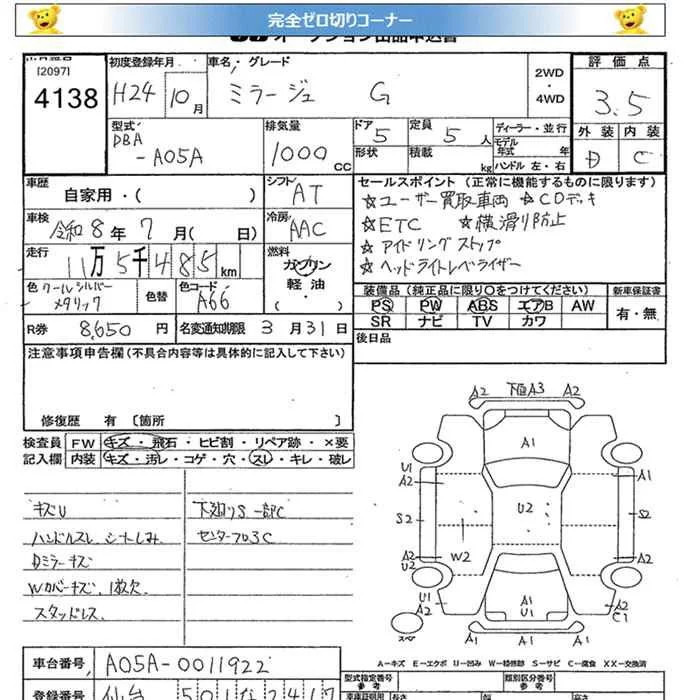 完全ゼロ切りコーナー
オークション出品申込書
[2097]
4138
初度登録年月
H24 10月
車名・グレード
ミラージュ G
2WD
・
4WD
評価点
3.5
外装 内装
D C
型式
DBA
-A05A
排気量
1000 CC
ドア
5
定員
5 人
ディーラー・並行
モデル年式 年
形状
積載 kg
ハンドル 左・右
車歴
自家用・( )
シフト
AT
車検
令和8年7月( 日)
冷房
AAC
走行
11万5千485km
燃料
ガソリン
・
軽油
・
( )
色 クールシルバー
メタリック
色替
色コード
A66
R券 8,650 円
名変通知期限 3月31日
セールスポイント(正常に機能するものに限ります)
☆ユーザー買取車両 ☆CDデッキ
☆ETC ☆横滑り防止
☆アイドリングストップ
☆ヘッドライトレベライザー
装備品(純正品に限り○をつけてください)
新車保証書
PS PW ABS エアB AW
SR ナビ TV カワ
有・無
後日品
注意事項申告欄(不具合内容等は具体的に記入して下さい)
修復歴 有 〔箇所 〕
検査員記入欄
FW キズ・飛石・ヒビ割・リペア跡・×要
内装 キズ・汚レ・コゲ・穴・スレ・キレ・破レ
キズU
ハンドルスレ、シートしみ
Dミラーキズ
Wカバーキズ、1枚欠
スタッドレス
下廻りS 一部C
センターフロアC
A2 下値A3 A2
A1
U1
A2
A1
S2
U2
S2
W2
A2
U2
A2
U1
A2
A1
U1
A2
C1
スペア
A1 A1 A1
A-キズ E-エクボ U-凹み W-補修跡 S-サビ C-腐食 XX-交換済
車台番号 A05A-0011922
型式指定番号
参考
類別区分番号
参考
登録番号 仙台 501 な 2417
長さ 幅 高さ